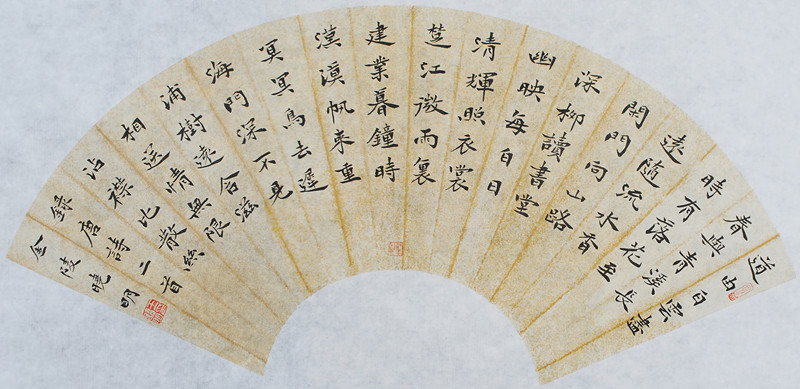 道由白雲盡
春與青溪長
時有落花至
遠隨流水香
閑門向山路
深柳讀書堂
幽映每白日
清輝照衣裳
楚江微雨裏
建業暮鐘時
漠漠帆来重
冥冥鳥去遲
海門深不見
浦樹遠含滋
相送情無限
沾襟比散絲
録唐詩二首
金陵曉明